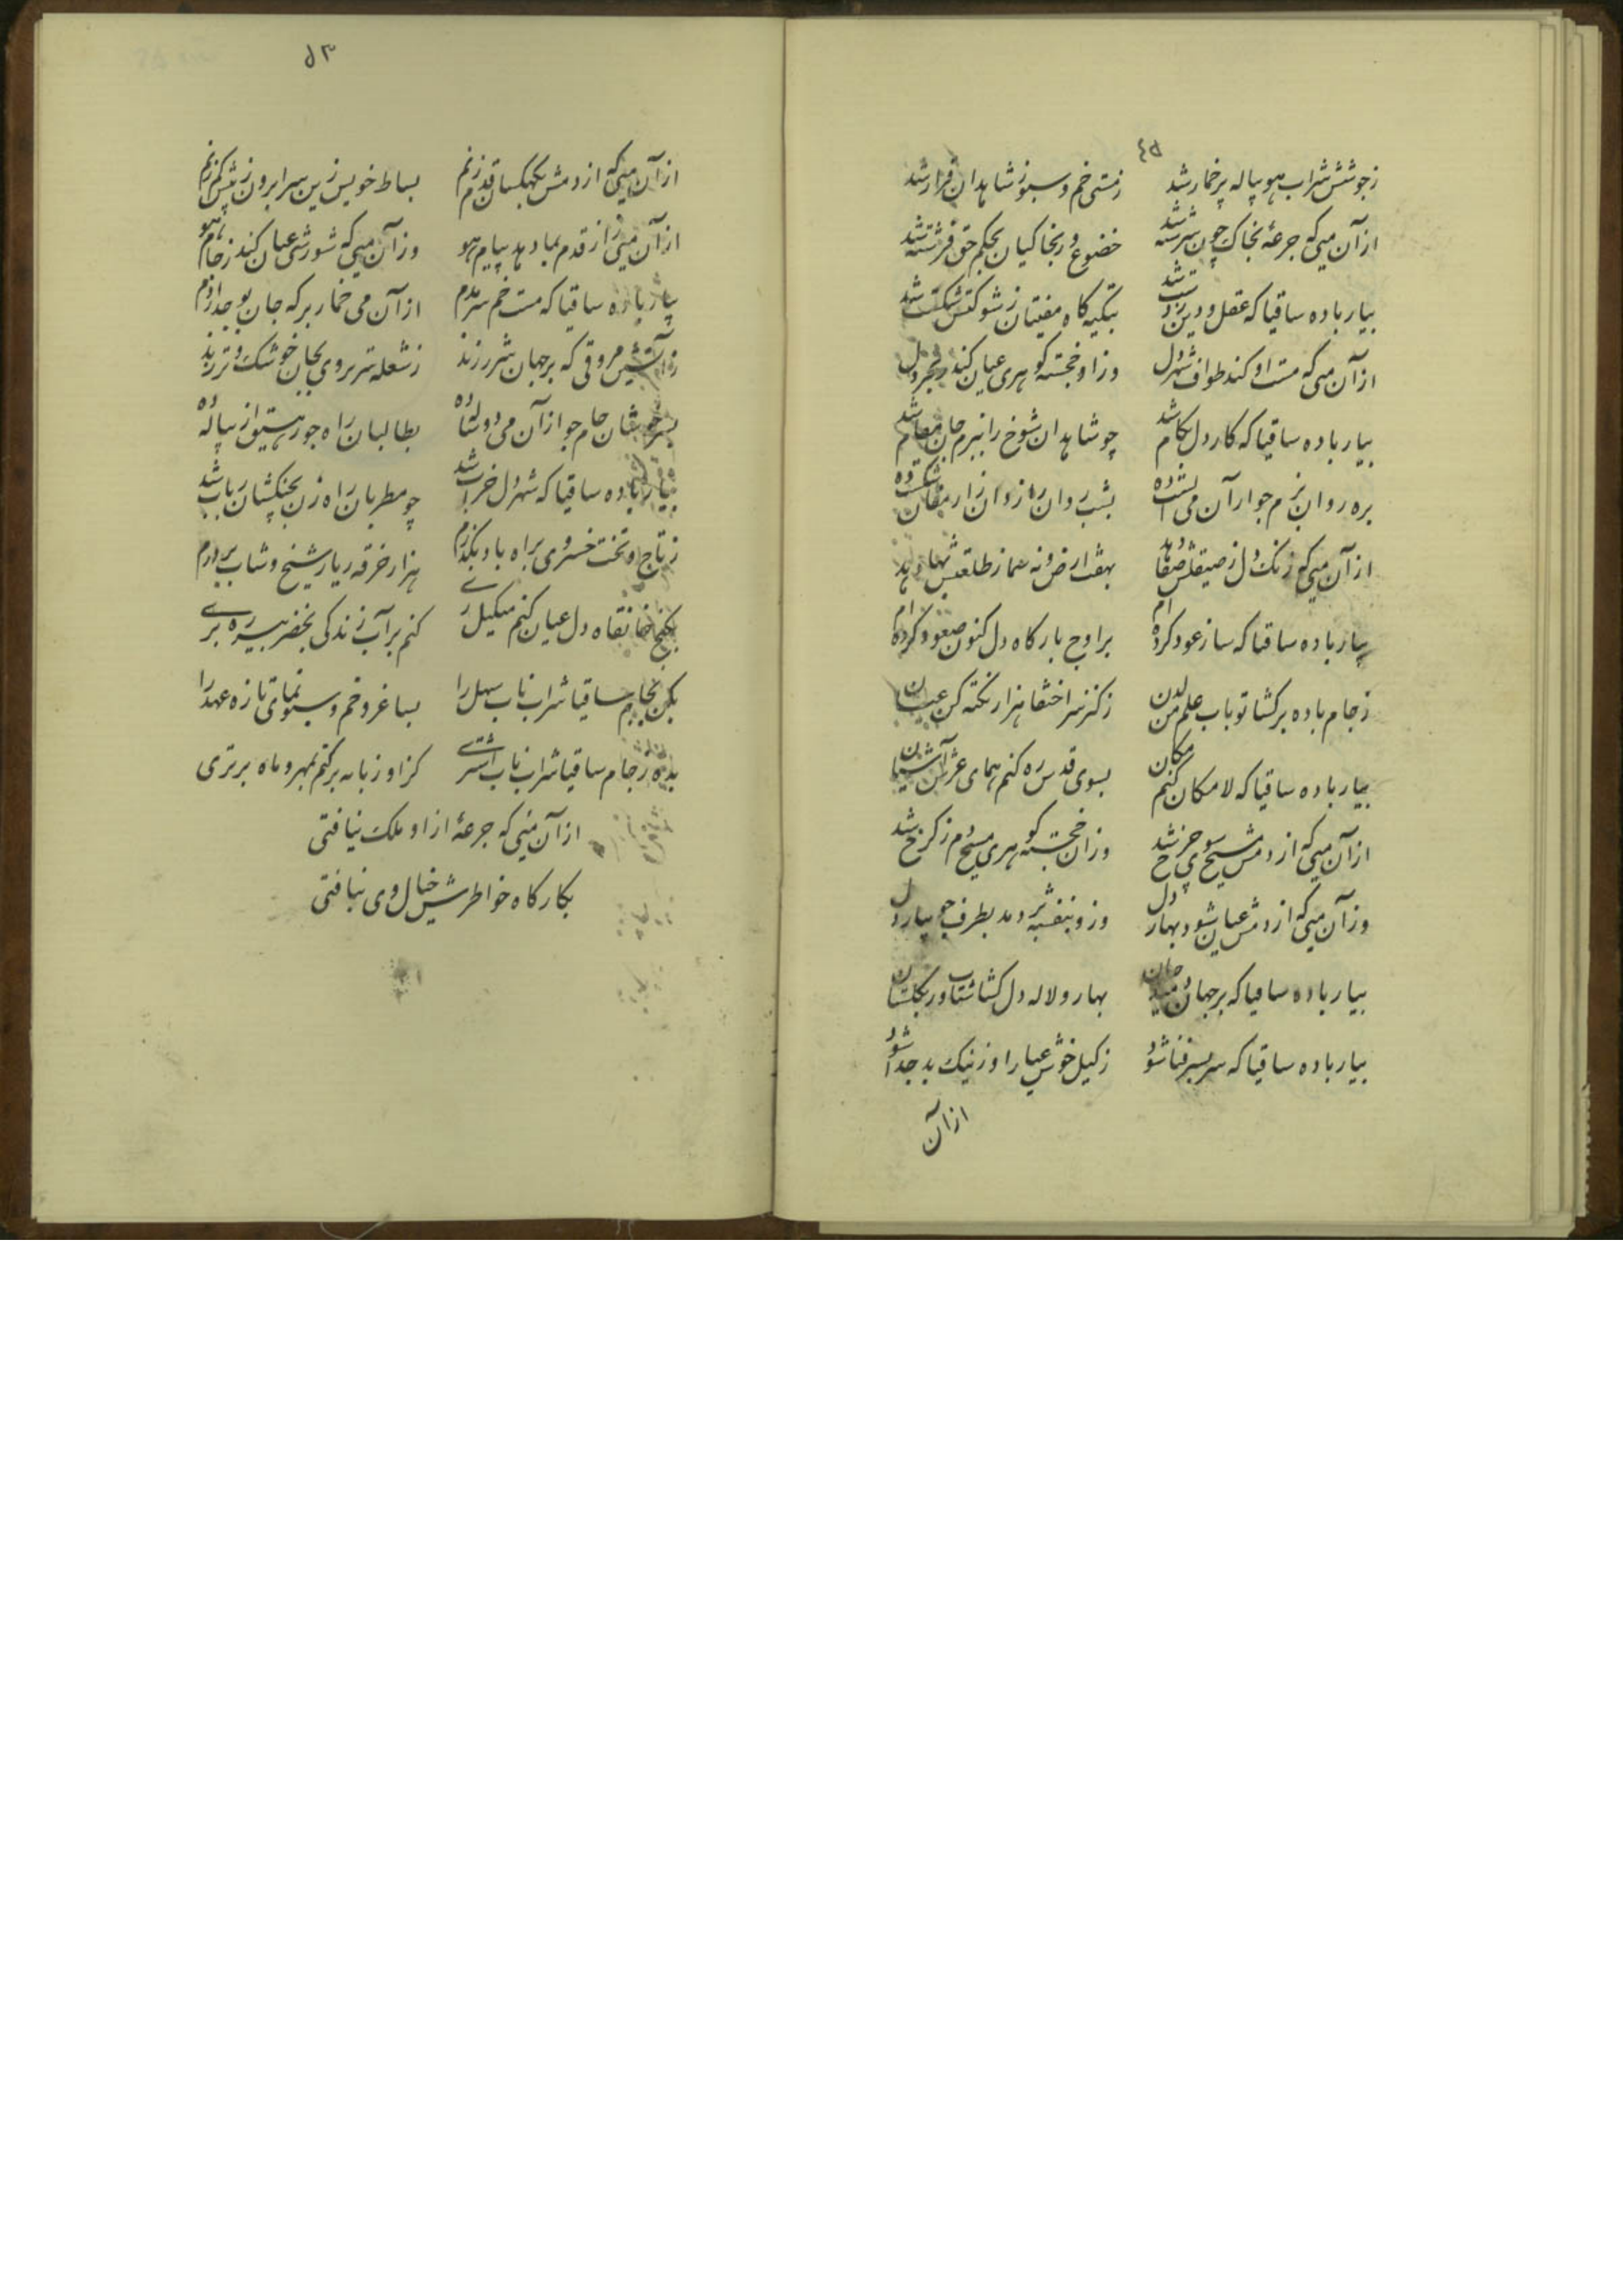 زجوشش شراب هو پیاله پر خمار شد زمستی خم و سبو ز شاهدان قرار شد
از آن میی که جرعهٔ بخاک چون سرشته شد خضوع ور بخاکیان بحکم حق فرشته شد
بیار باده ساقیا که عقل و دین ز دست شد بتکیه کاه مفتیان ز شوکتش شکست شد
از آن میی که مست او کند طواف شهر دل وزاو خجسته کوهری عیان کند ز بحر دل
بیار باده ساقیا که کار دل بکام شد چو شاهدان شوخ را ببزم جان مقام شد
بره روان بزم جو ار آن می بشب روان
از آن میی که زنک دل ز صیقلش صفا دهد بهفت ارض و نه سما ز طلعتش بها دهد
بیار باده ساقیا که ساز عود کرده ام بر اوج بارکاه دل کنون صعود کرده ام
ز جام باده برکشا تو باب علم من لدن ز کنز سر اختفا هزار نکته کن عیان
بیار باده ساقیا که لامکان مکان کنم بسوی قدس ره کنم همای عرش آشیان
از آن میی که از دمش مسیح سوی چرخ شد وزان خجسته کوهری
وز آن میی که از دمش عیان شود بهار دل وز و بنفشه بر دمد بطرف جویبار دل
بیار باده ساقیا که بر جهان دمید جان بهار و لاله دل کشا شتاب ور بکلستان
بیار باده ساقیا که سر بسر فنا شود ز کیل خوش عیار او ز نیک بد جدا شود
از آن
۵۳
از آن میی که از دمش بکهکشان قدم زنم بساط خویس زین سرا برون ز بیش کم زنم
از آن میی راز قدم بما دهد پیام هو وز آن میی که شورشی عیان کند ز جام هو
بیار باده ساقیا که مست خم سر مدم از آن می خمار بر که جان بوجد ازدم
آتشین مروقی که بر جهان شرر زند ز شعله سر بروی بجان خوشک و تر زند
جام جو از آن می بطالبان راه جو
بیار باده ساقیا که شهر دل خراب شد چو مطربان راه زن بچنکشان رباب شد
ز تاج و تخت خسروی براه باد بکذرم هزار خرقه ریا ز شیخ و شاب بر درم
بکنج خانقاه دل عیان کنم میکیل رے کنم بر آب زندکی بخضر
بکن بجام ساقیا شراب ناب سهل را بساغر و خم و سبو نمای تازه عهد را
بده ز جام ساقیا شراب ناب کز او زبانه برکنم بمهر و ماه برتری
از آن میی که جرعهٔ از او ملک نیافتی
بکارکاه خواطرش خیال وی نیافتی